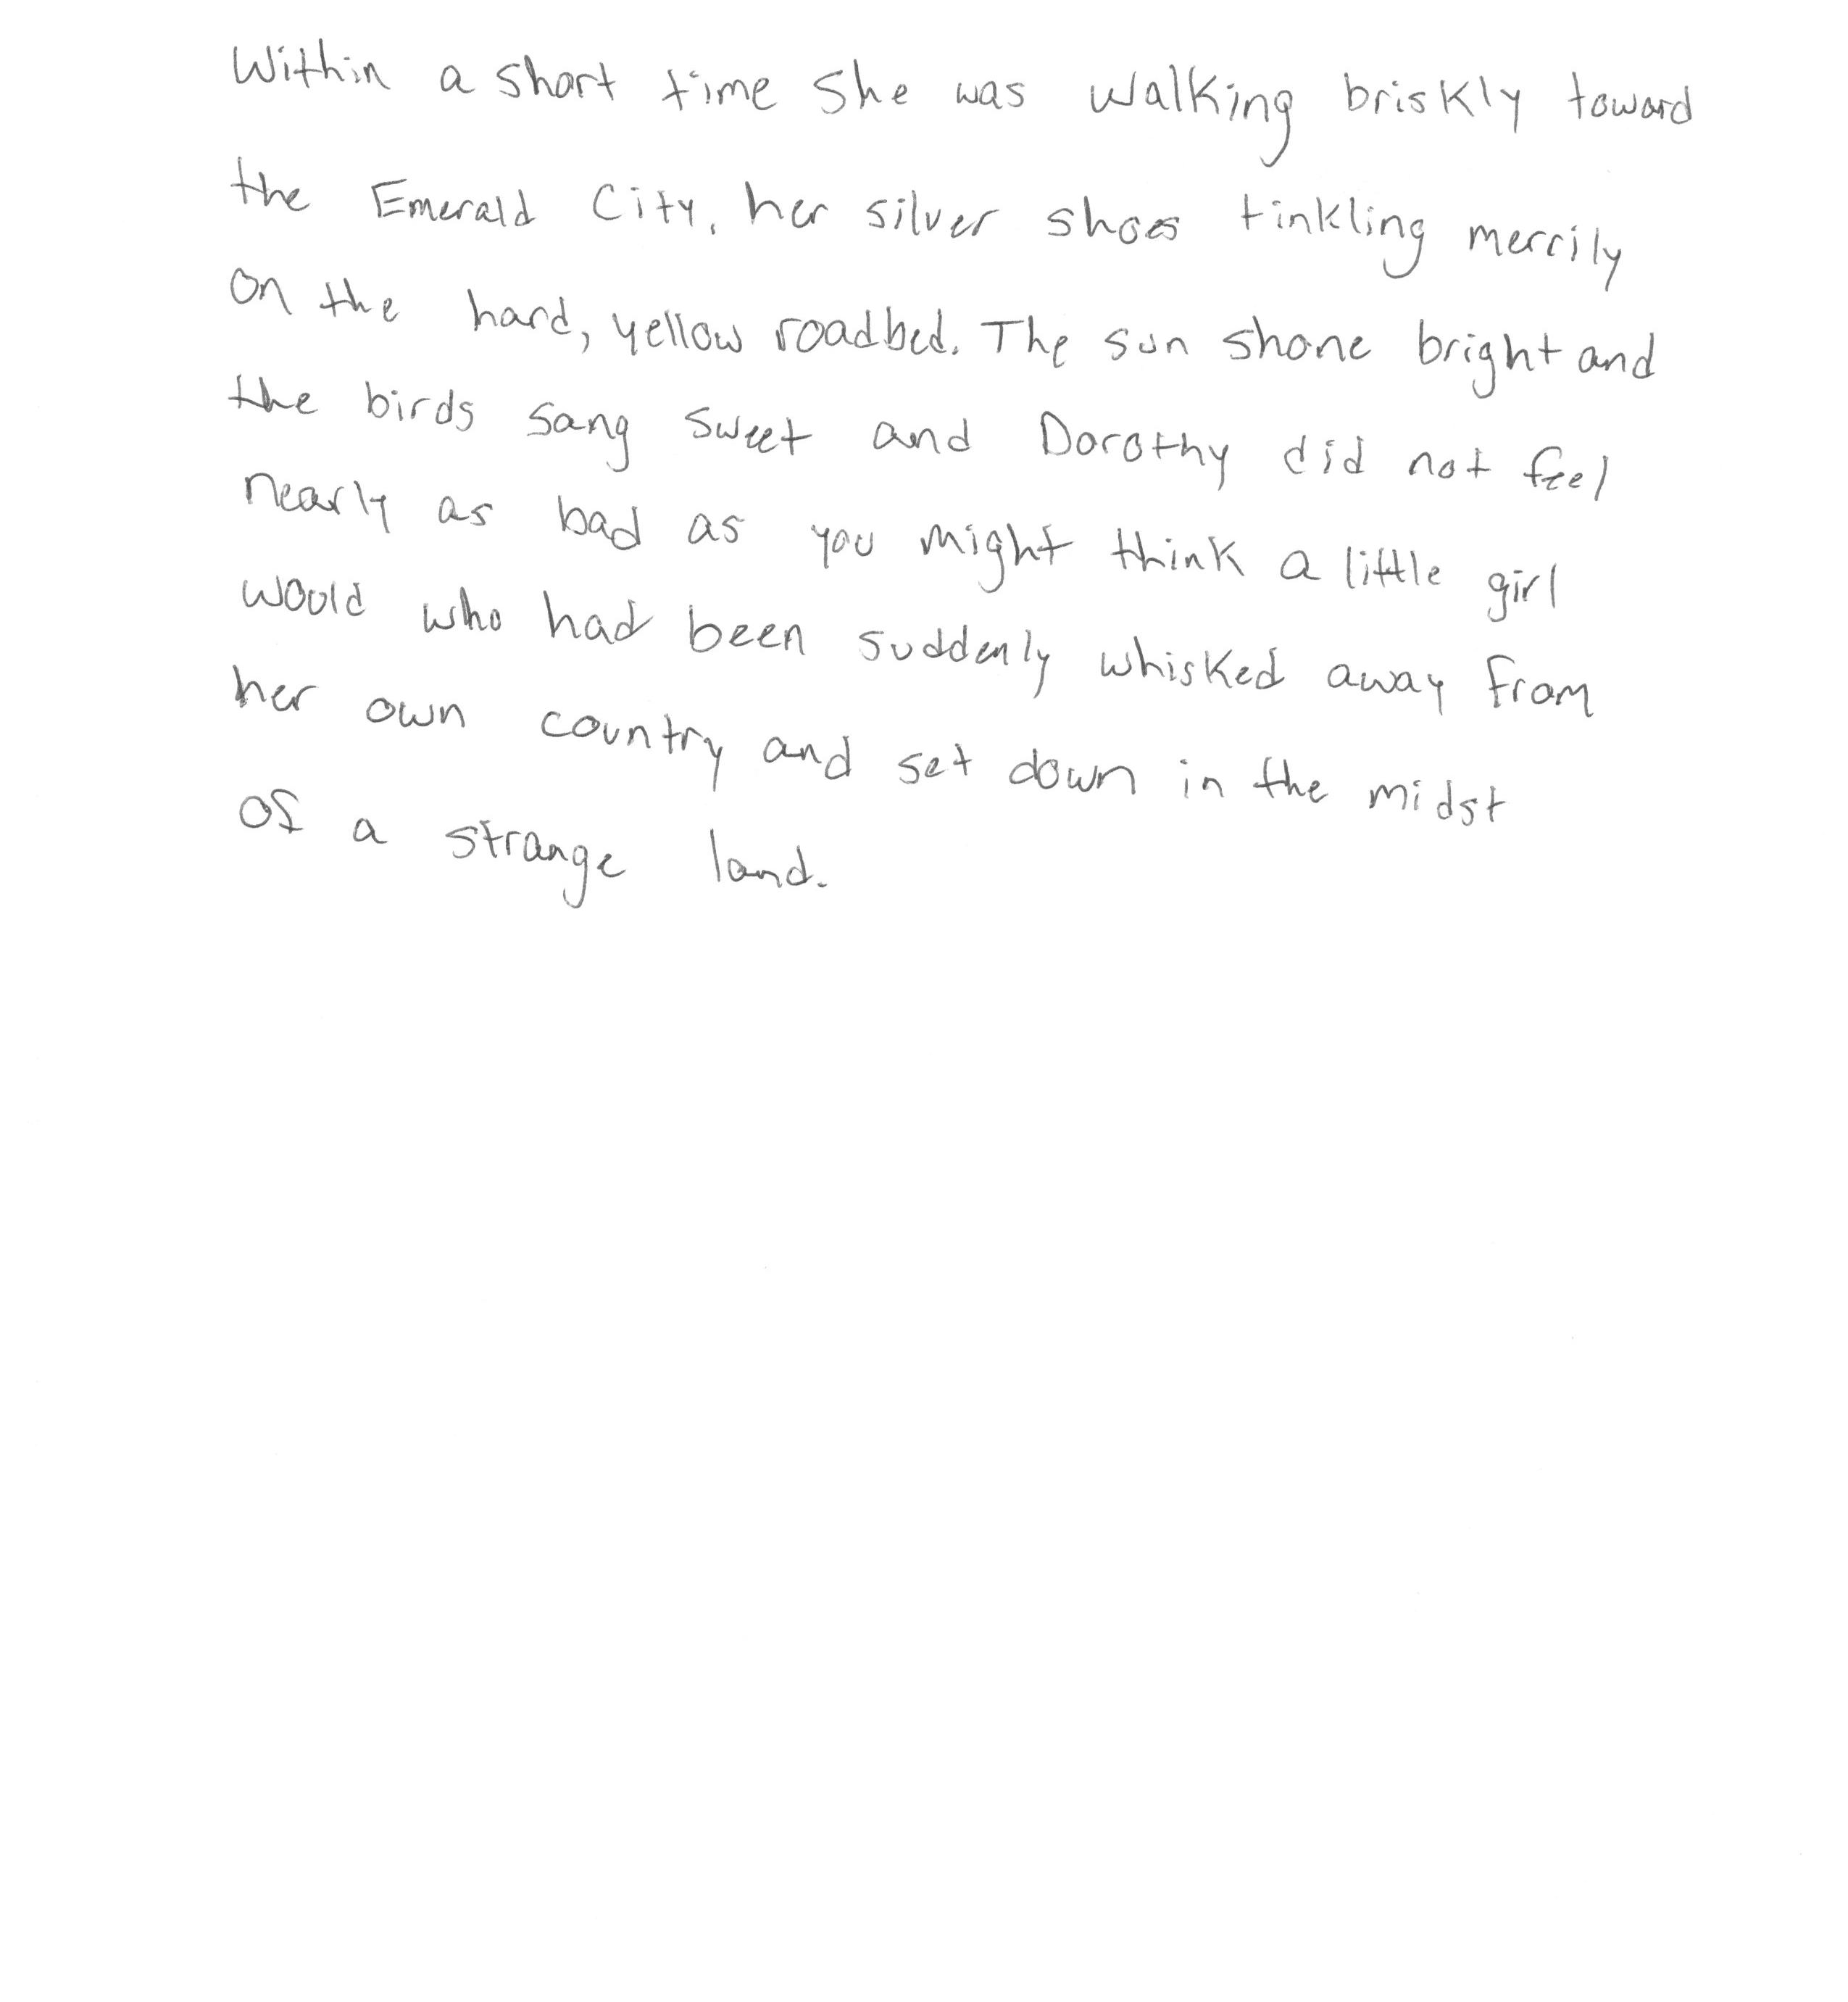 Within a short time she was walking briskly toward
the Emerald City, her silver shoes tinkling merrily
on the hard, yellow roadbed. The sun shone bright and
the birds sang sweet and Dorothy did not feel
nearly as bad as you might think a little girl
would who had been suddenly whisked away from
her own country and set down in the midst
of a strange land.